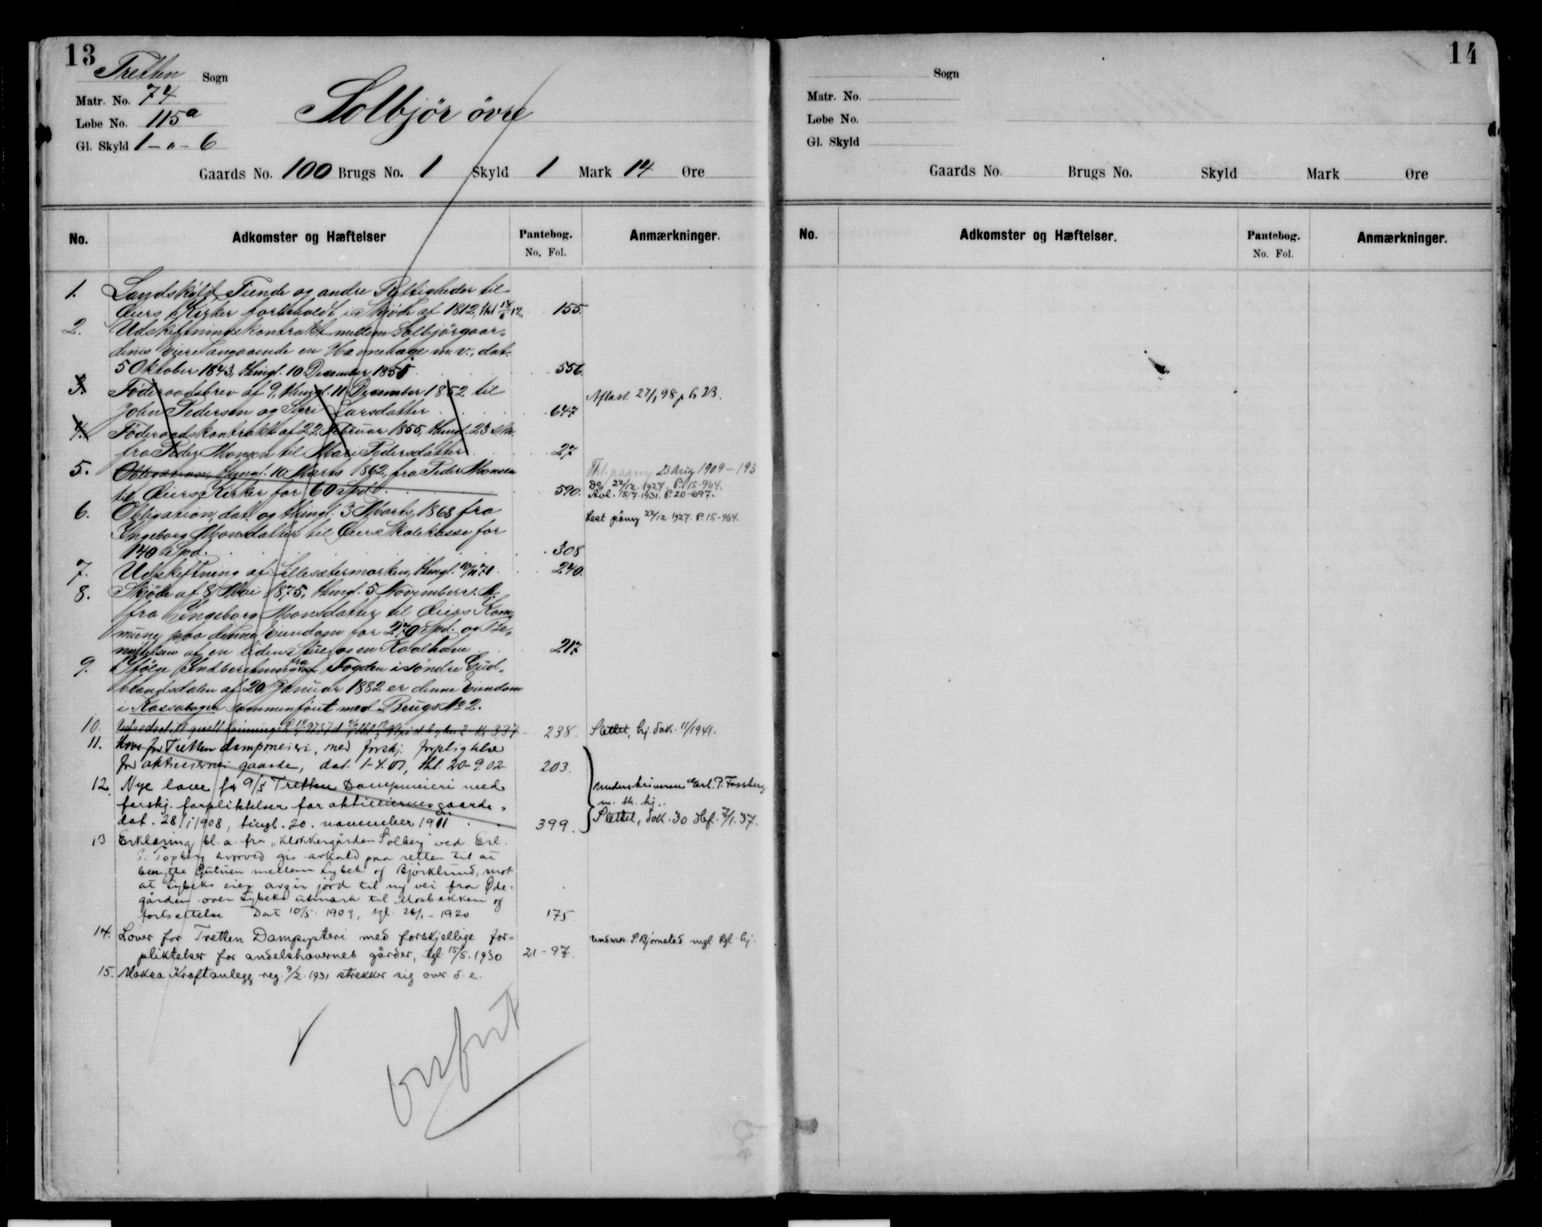 13
Tretten Sogn
Matr. No. 74
Løbe No. 115a
Gl. Skyld 1 - " - 6
Solbjør øvre
Gaards No. 100 Brugs No. 1 Skyld 1 Mark 14 Øre
No. Adkomster og Hæftelser Pantebog. No. Fol. Anmærkninger.
1. Landskyld, Tiende og andre Rettigheder til
Øiers Kirker forbeholdt i Skjøde af 1812, 155.
2. Udskiftningskontrakt mellem Solbjørgaar-
denes Eiere angaaende en Havnehage m. v., dat.
5 Oktober 1843, thingl. 10 December 1855 556.
3. Føderaadsbrev af 9, thingl. 11 December 1852 til
John Pedersen og Siri Larsdatter 647 Aflæst 27/1 98 p 6 B.
4. Føderaadskontrakt af 22 Februar 1855, thingl. 23
fra Peder Monsen til Mari Pedersdatter 27
5. Obligation, thingl. 10 Marts 1862, fra Peder Monsen
til Øiers Kirker for 60 Spd. 590.
Thl. paany 23 Aug 1909 - 193
Do 22/12 1927. P. 15-964.
Avl. 15/7 1931. P. 20-697.
6. Obligation, dat. og thingl. 3 Marts 1868 fra
Ingeborg Monsdatter til Øiers Skolekasse for
140 Spd. 308
Læst påny 22/12 1927. P. 15-964.
7. Udskiftning af Lillesætermarken, thingl. 240.
8. Skjøde af 8 Mai 1875, thingl. 5 November s. A.
fra Ingeborg Monsdatter til Øiers Kom-
mune paa denne Eiendom for 270 Spd. og Be-
nyttelsen af en liden Stue og en Kaalhave 217
9. Ifølge Indberetning fra Fogden i søndre Gud-
brandsdalen af 20 Januar 1882 er denne Eiendom
i Kassabogen sammenføiet med Brugs No 2.
10. 238. Slettet, kfr dok. 1941.
11. Love for Tretten dampmeieri, med forskj. forpligtelse
for aktieeiernes gaarde, dat. 1-4 01, thl. 20-9.02 203.
12. Nye love for 9/5 Tretten Dampmeieri med
forskj. forpliktelser for aktieeiernes gaarde,
dat. 28/1 1908, tingl. 20. november 1911 399.
Underskriveren Erl. P. Fossberg
Slettet, dok. 30 37.
13 Erklæring bl. a. fra "Klokkergården Solberg" ved Erl.
P. hvorved gis avkald paa retten til at
benytte Gutuen mellem Lybek og Bjørklund, mot
at Lybeks eier avgir jord til ny vei fra Øde-
gården over Lybeks utmark til Mosbakken og
fortsettelse Dat 10/5 1909, tgl. 26/1 - 1920 175
14. Lover for Tretten Dampysteri med forskjellige for-
pliktelser for andelshavernes gårder, tgl 15/5. 1930 21-97.
Undersk. P Bjørnstad
15. Moksa Kraftanlegg reg. 9/2 1931 strekker sig over d. e.
Overført
14
Sogn
Matr. No.
Løbe No.
Gl. Skyld
Gaards No. Brugs No. Skyld Mark Øre
No. Adkomster og Hæftelser. Pantebog. No. Fol. Anmærkninger.